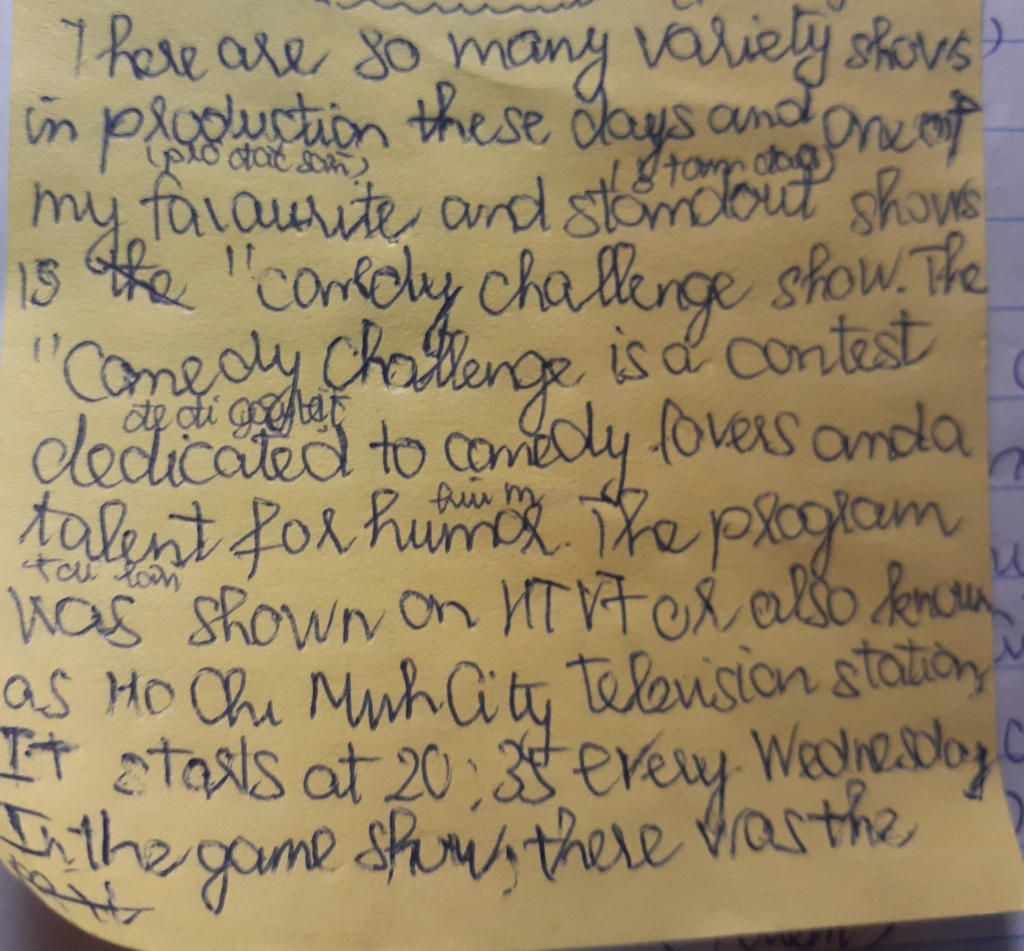 There are so many variety shows
in production these days and one of
my favaurite and standout shows
is the "comedy challenge show. The
"Comedy Challenge is a contest
dedicated to comedy lovers and a
talent for humor. The program
was shown on HTV7 or also known
as Ho Chi Minh City Television station,
It starts at 20:35 every Wednesday
In the game show, there was the